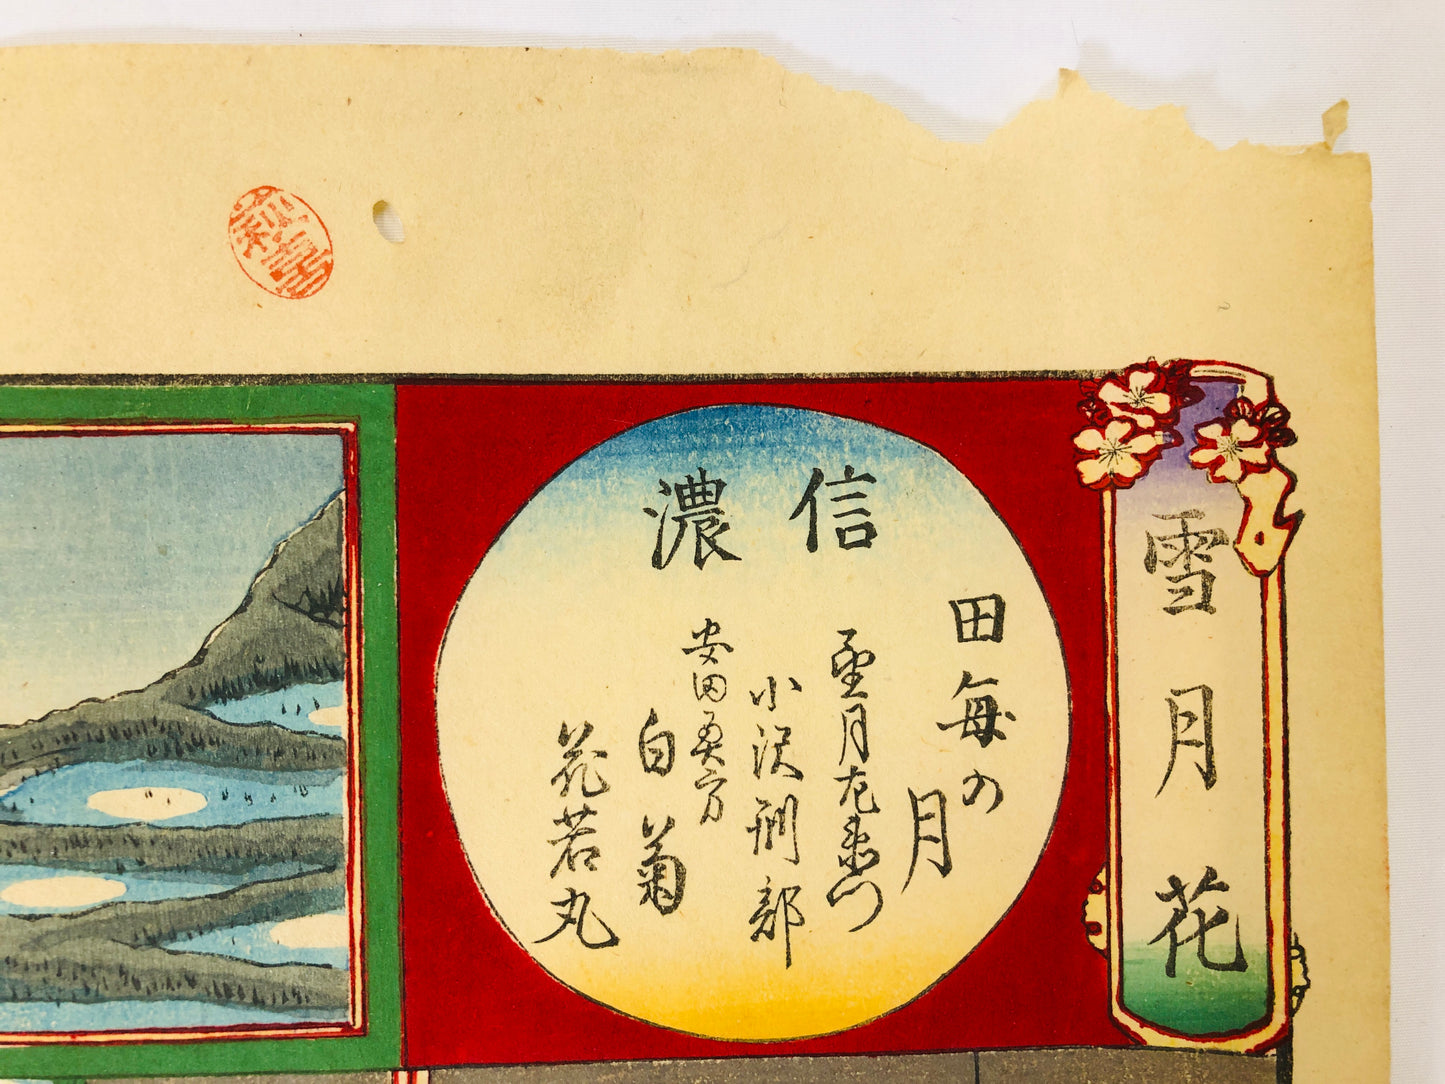 雪月花
信濃
田毎の月
望月左衛門
小沢刑部
安田奥方
白菊
花若丸